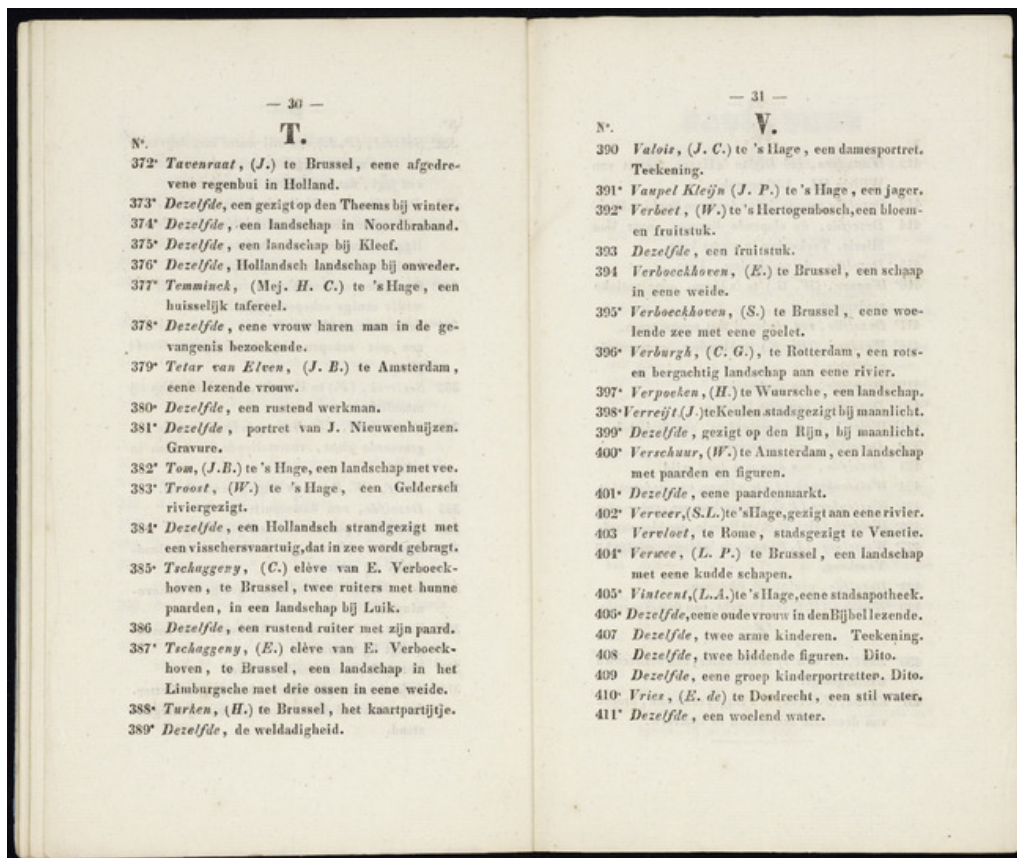 — 30 —
T.
N°.
372* Tavenraat, (J.) te Brussel, eene afgedre-
vene regenbui in Holland.
373* Dezelfde, een gezigt op den Theems bij winter.
374* Dezelfde, een landschap in Noordbraband.
375* Dezelfde, een landschap bij Kleef.
376* Dezelfde, Hollandsch landschap bij onweder.
377* Temminck, (Mej. H. C.) te 's Hage, een
huisselijk tafereel.
378* Dezelfde, eene vrouw haren man in de ge-
vangenis bezoekende.
379* Tetar van Elven, (J. B.) te Amsterdam,
eene lezende vrouw.
380* Dezelfde, een rustend werkman.
381* Dezelfde, portret van J. Nieuwenhuijzen.
Gravure.
382* Tom, (J.B.) te 's Hage, een landschap met vee.
383* Troost, (W.) te 's Hage, een Geldersch
riviergezigt.
384* Dezelfde, een Hollandsch strandgezigt met
een visschersvaartuig, dat in zee wordt gebragt.
385* Tschaggeny, (C.) elève van E. Verboeck-
hoven, te Brussel, twee ruiters met hunne
paarden, in een landschap bij Luik.
386 Dezelfde, een rustend ruiter met zijn paard.
387* Tschaggeny, (E.) elève van E. Verboeck-
hoven, te Brussel, een landschap in het
Limburgsche met drie ossen in eene weide.
388* Turken, (H.) te Brussel, het kaartpartijtje.
389* Dezelfde, de weldadigheid.
— 31 —
V.
N°.
390 Valois, (J. C.) te 's Hage, een damesportret.
Teekening.
391* Vaupel Kleijn (J. P.) te 's Hage, een jager.
392* Verbeet, (W.) te 's Hertogenbosch, een bloem-
en fruitstuk.
393 Dezelfde, een fruitstuk.
394 Verboeckhoven, (E.) te Brussel, een schaap
in eene weide.
395* Verboeckhoven, (S.) te Brussel, eene woe-
lende zee met eene goelet.
396* Verburgh, (C. G.), te Rotterdam, een rots-
en bergachtig landschap aan eene rivier.
397* Verpoeken, (H.) te Wuursche, een landschap.
398* Verreijt (J.) te Keulen. stadsgezigt bij maanlicht.
399* Dezelfde, gezigt op den Rijn, bij maanlicht.
400* Verschuur, (W.) te Amsterdam, een landschap
met paarden en figuren.
401* Dezelfde, eene paardenmarkt.
402* Verveer, (S.L.) te 's Hage, gezigt aan eene rivier.
403 Vervloet, te Rome, stadsgezigt te Venetie.
404* Verwee, (L. P.) te Brussel, een landschap
met eene kudde schapen.
405* Vintcent, (L.A.) te 's Hage, eene stadsapotheek.
406* Dezelfde, eene oude vrouw in den Bijbel lezende.
407 Dezelfde, twee arme kinderen. Teekening.
408 Dezelfde, twee biddende figuren. Dito.
409 Dezelfde, eene groep kinderportretten. Dito.
410* Vries, (E. de) te Dordrecht, een stil water.
411* Dezelfde, een woelend water.